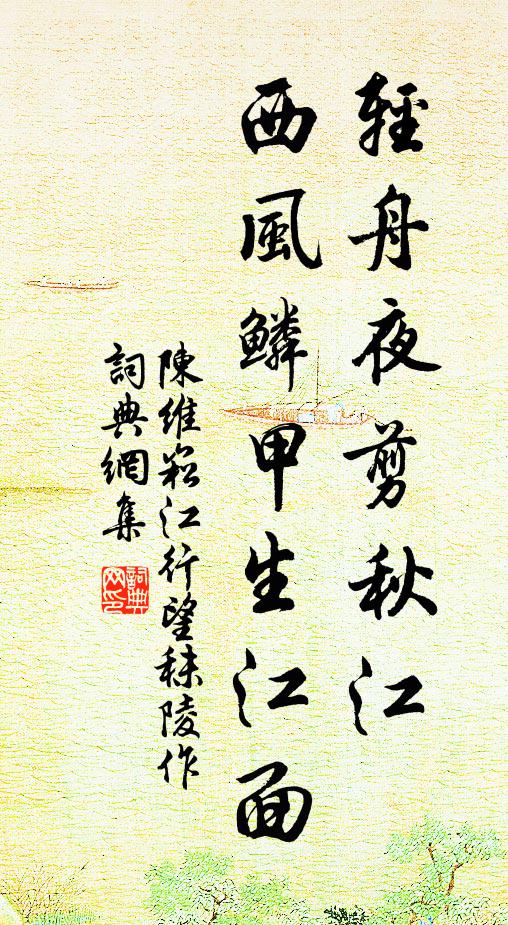 輕舟夜剪秋江
西風鱗甲生江面
陳維崧江行望秣陵作
詞典網集
詞典網印